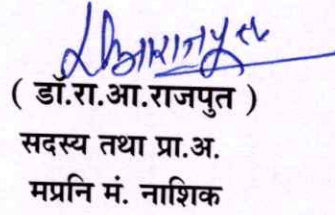 ( डॉ.रा.आ.राजपुत )
सदस्य तथा प्रा.अ.
मप्रनि मं. नाशिक